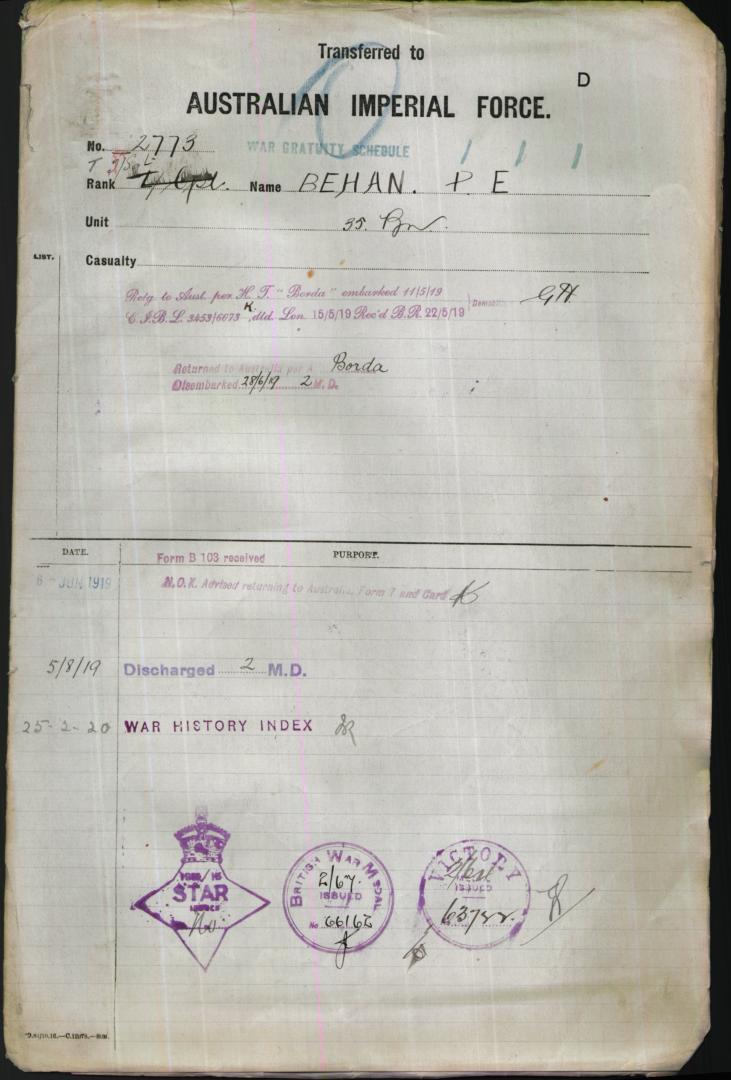 Transferred to
D
AUSTRALIAN IMPERIAL FORCE.
No. 2773
WAR GRATUITY SCHEDULE
T/Sgt
Rank L/Cpl. Name BEHAN. P. E
Unit 35. Bn.
LIST.
Casualty
Retg. to Aust. per H. T. "Borda" embarked 11/5/19
C.I.B.L. 3453/6073 K, dtd. Lon 15/5/19 Rec'd B.R. 22/5/19
Returned to Australia per Borda
Disembarked 28/6/19 2 M.D.
DATE.
PURPORT.
Form B 103 received
6 - JUN 1919
N.O.K. Advised returning to Australia, Form 7 and Card
5/8/19 Discharged 2 M.D.
25-2-20 WAR HISTORY INDEX
STAR
No.
BRITISH WAR MEDAL
2/67
ISSUED
No 66162
VICTORY
ISSUED